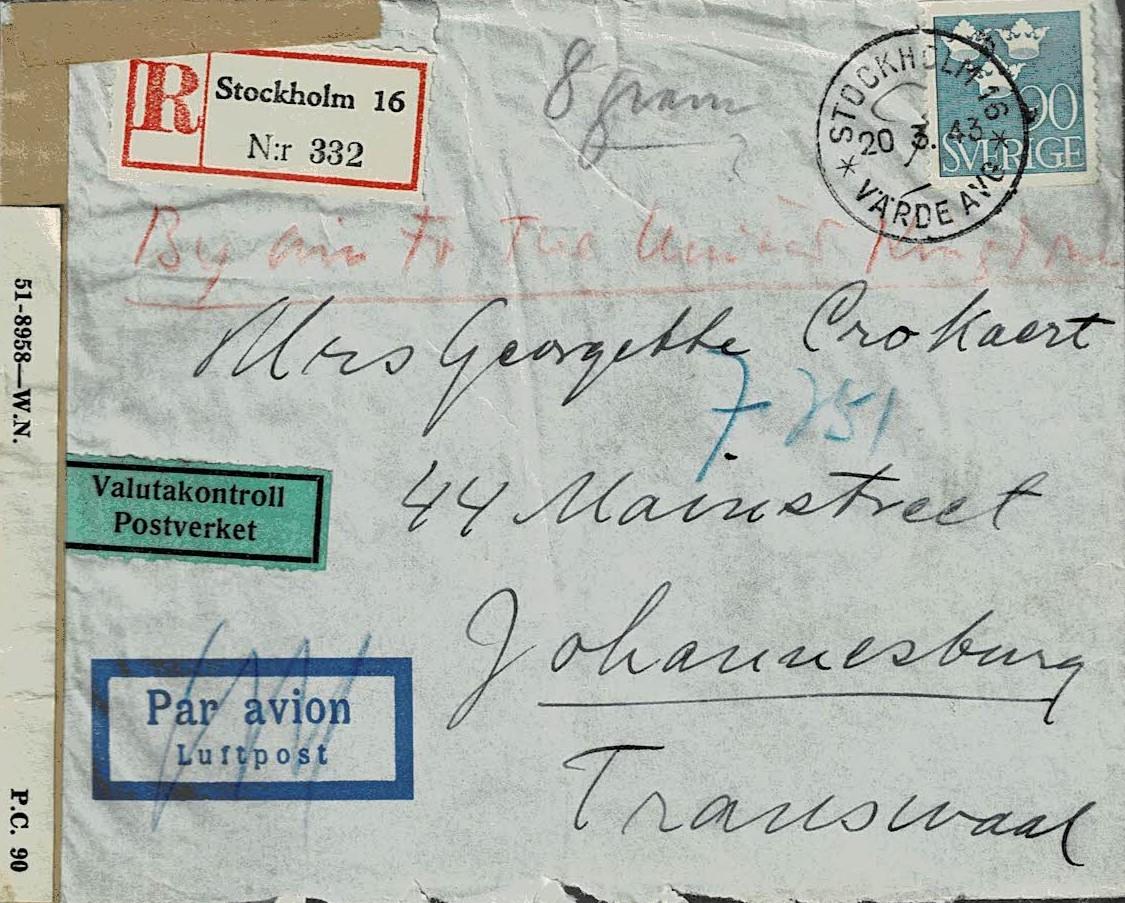 R
Stockholm 16
N:r 332
8 gram
90
SVERIGE
STOCKHOLM 16
20 3. 43
* VÄRDE AVG *
By air to The United Kingdom
Mrs Georgette Crokaert
7 251
44 Mainstreet
Johannesburg
Transwaal
Valutakontroll
Postverket
Par avion
Luftpost
51-8958—W.N.
P.C. 90